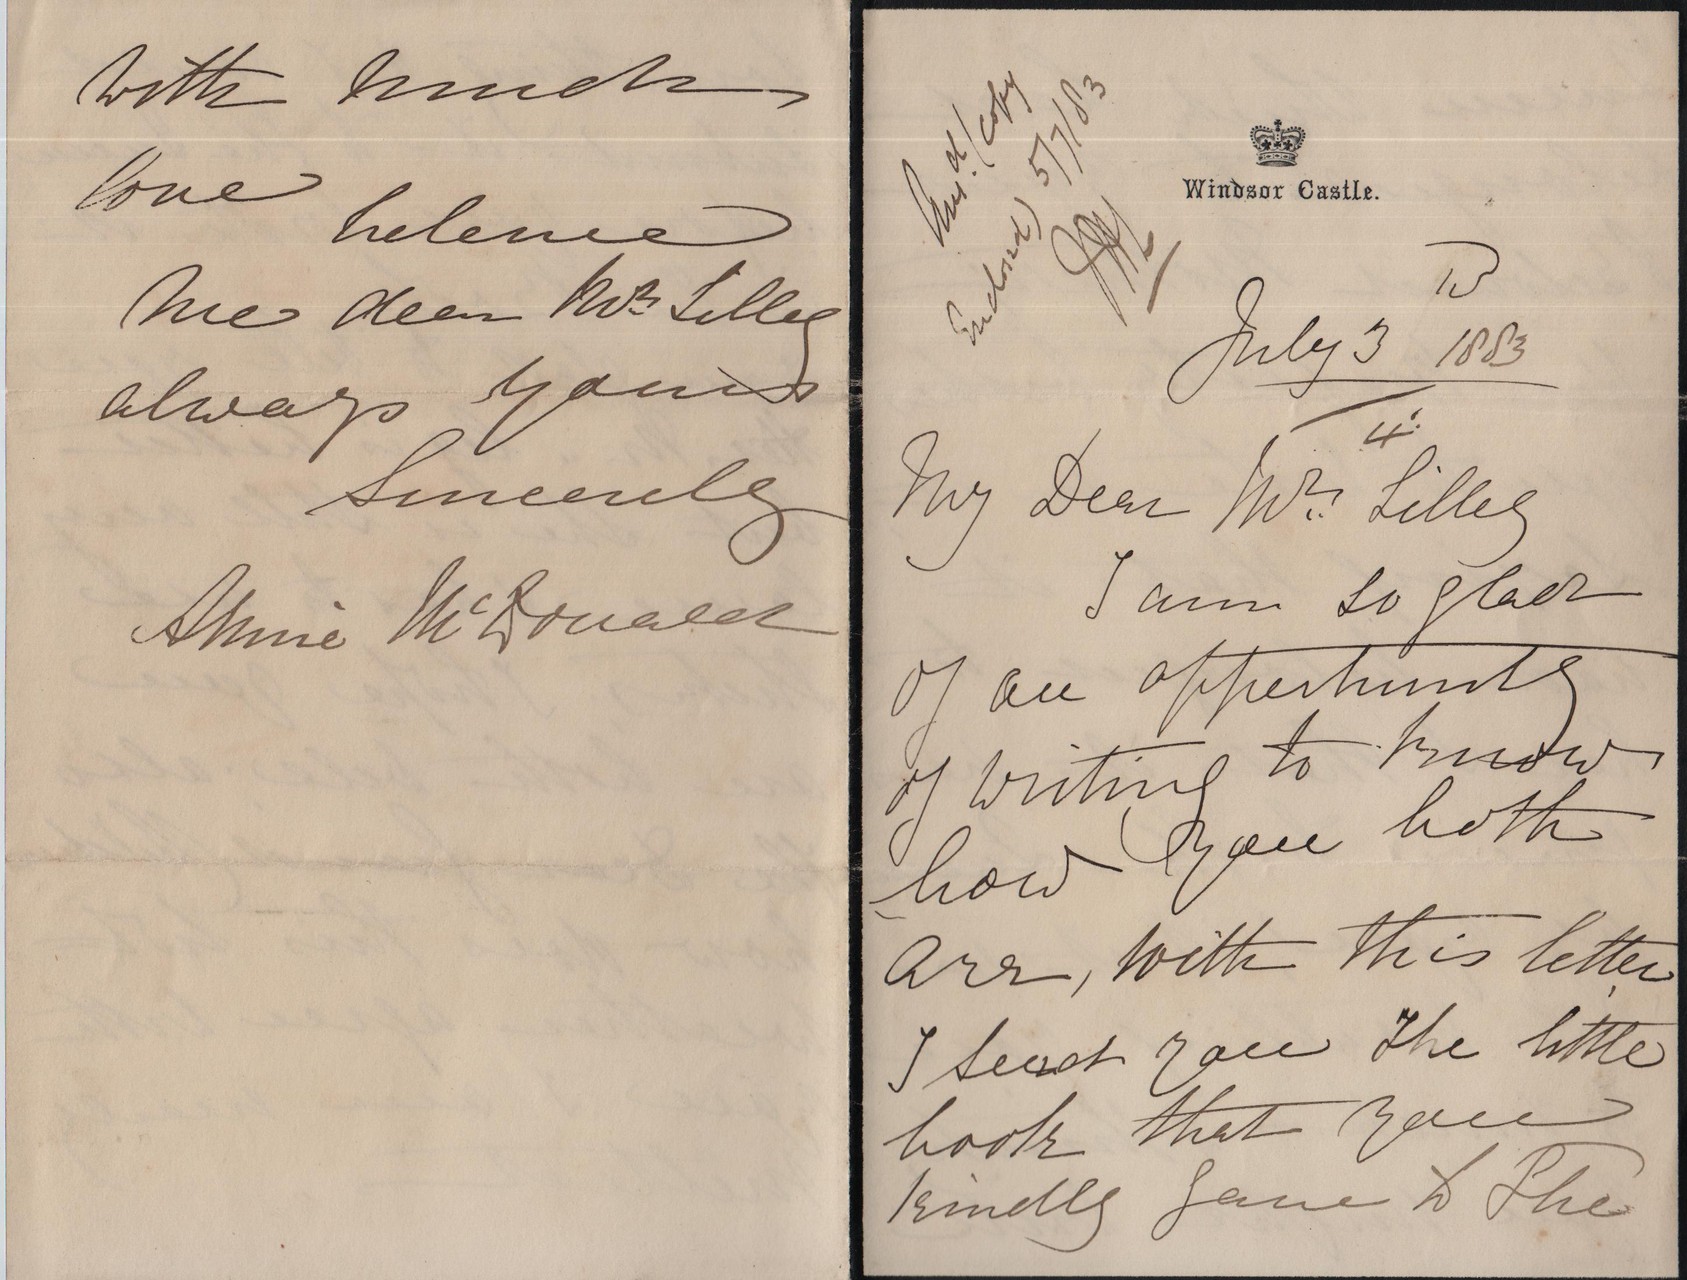 with much
love believe
me dear Mrs Lilley
always yours
Sincerely
Annie McDonald
Ansd (copy
Enclosed) 5/7/83
Windsor Castle.
July 3 1883
4
My Dear Mrs Lilley
I am so glad
of an oppertunity
of writing to know
how you both
are, with this letter
I send you the little
book that you
kindly gave to the